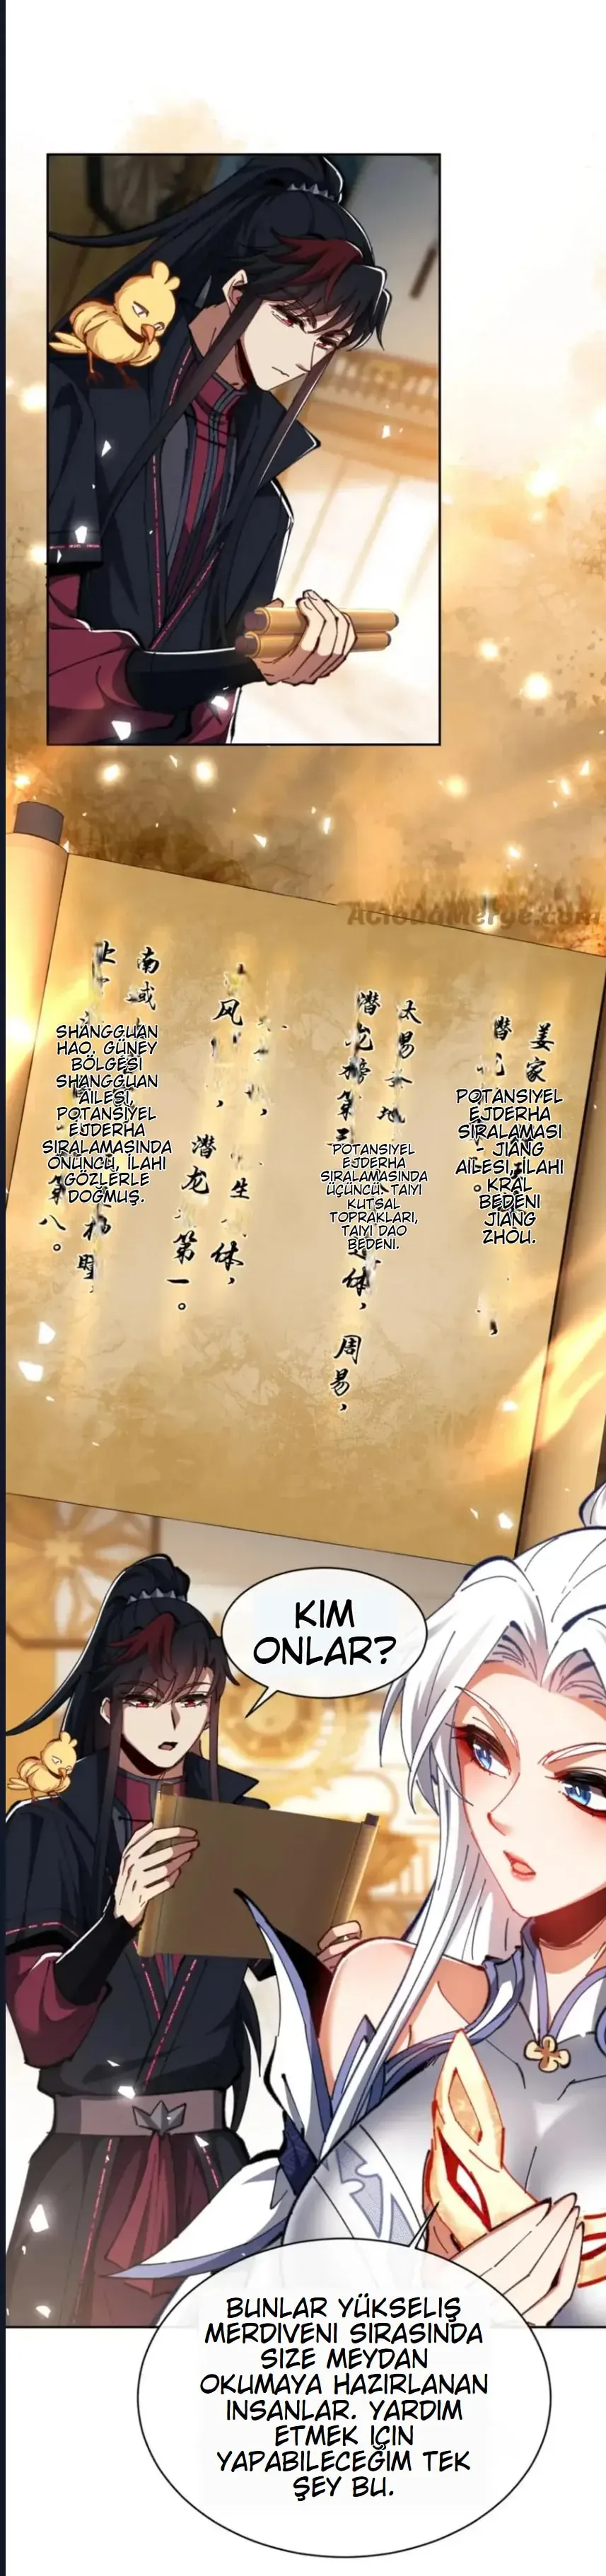 AcloudMerge.com
SHANGGUAN
HAO, GÜNEY
BÖLGESİ
SHANGGUAN
AİLESİ,
POTANSİYEL
EJDERHA
SIRALAMASINDA
ONUNCU, İLAHİ
GÖZLERLE
DOĞMUŞ.
南
或
风
潜
龙
第
一。
生
体,
八。
POTANSİYEL
EJDERHA
SIRALAMASINDA
ÜÇÜNCÜ, TAIYI
KUTSAL
TOPRAKLARI,
TAIYI DAO
BEDENİ.
太
易
潜
龙
榜
第
体,
周
易,
POTANSİYEL
EJDERHA
SIRALAMASI
- JIANG
AİLESİ, İLAHİ
KRAL
BEDENİ
JIANG
ZHOU.
姜
家
潜
KIM
ONLAR?
BUNLAR YÜKSELIŞ
MERDIVENI SIRASINDA
SIZE MEYDAN
OKUMAYA HAZIRLANAN
INSANLAR. YARDIM
ETMEK IÇIN
YAPABILECEĞIM TEK
ŞEY BU.